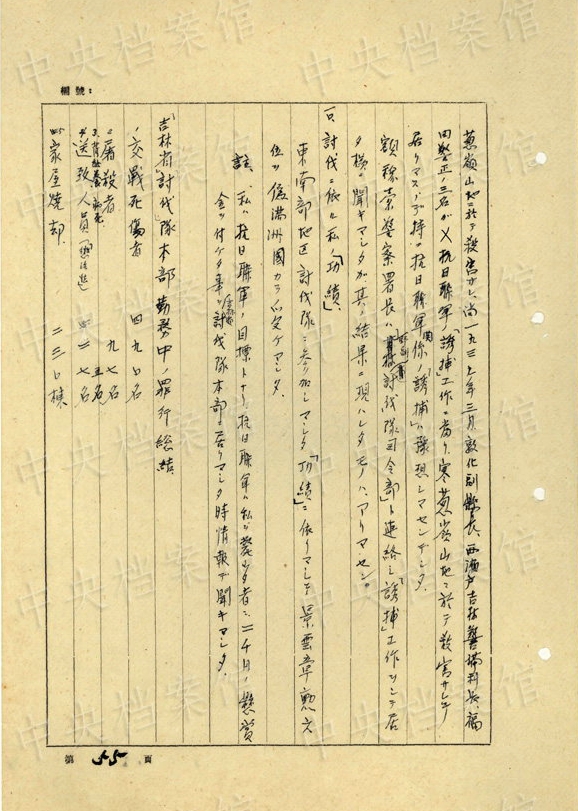 中央档案馆
編號：
葱嶺山地ニ於テ殺害サレ、尚一九三七年三月、敦化副縣長、西瀬戸吉林警備科長、福
田警正ノ三名ガ又抗日聯軍ノ「誘捕」工作ノ為メ、寒葱嶺山地ニ於テ殺害サレテ
居リマスノデ、特ニ抗日聯軍関係ノ「誘捕」ハ豫想シマセンデシタ。
額穆索警察署長ハ討伐隊司令部ト連絡シ「誘捕」工作ヲシテ居
タ様ニ聞キマシタガ其ノ結果ニ現ハレタモノハアリマセン。
討伐ニ依ル私ノ「功績」
東南部地区討伐隊ニ参加シマシタ「功績」ニ依リマシテ景雲章勲六
位ヲ偽満洲國カラ受ケマシタ。
註、私ハ抗日聯軍ノ目標トナリ抗日聯軍ハ私ヲ斃シタ者ニ二千円ノ懸賞
金ヲ付ケタ事ヲ討伐隊本部ニ居リマシタ時情報デ聞キマシタ。
「吉林省討伐隊」本部勤務中ノ罪行総結
交戦死傷者 四九〇名
屠殺者 九七名
五名
送致人員 七名
家屋焼却 二三〇棟
第 55 頁